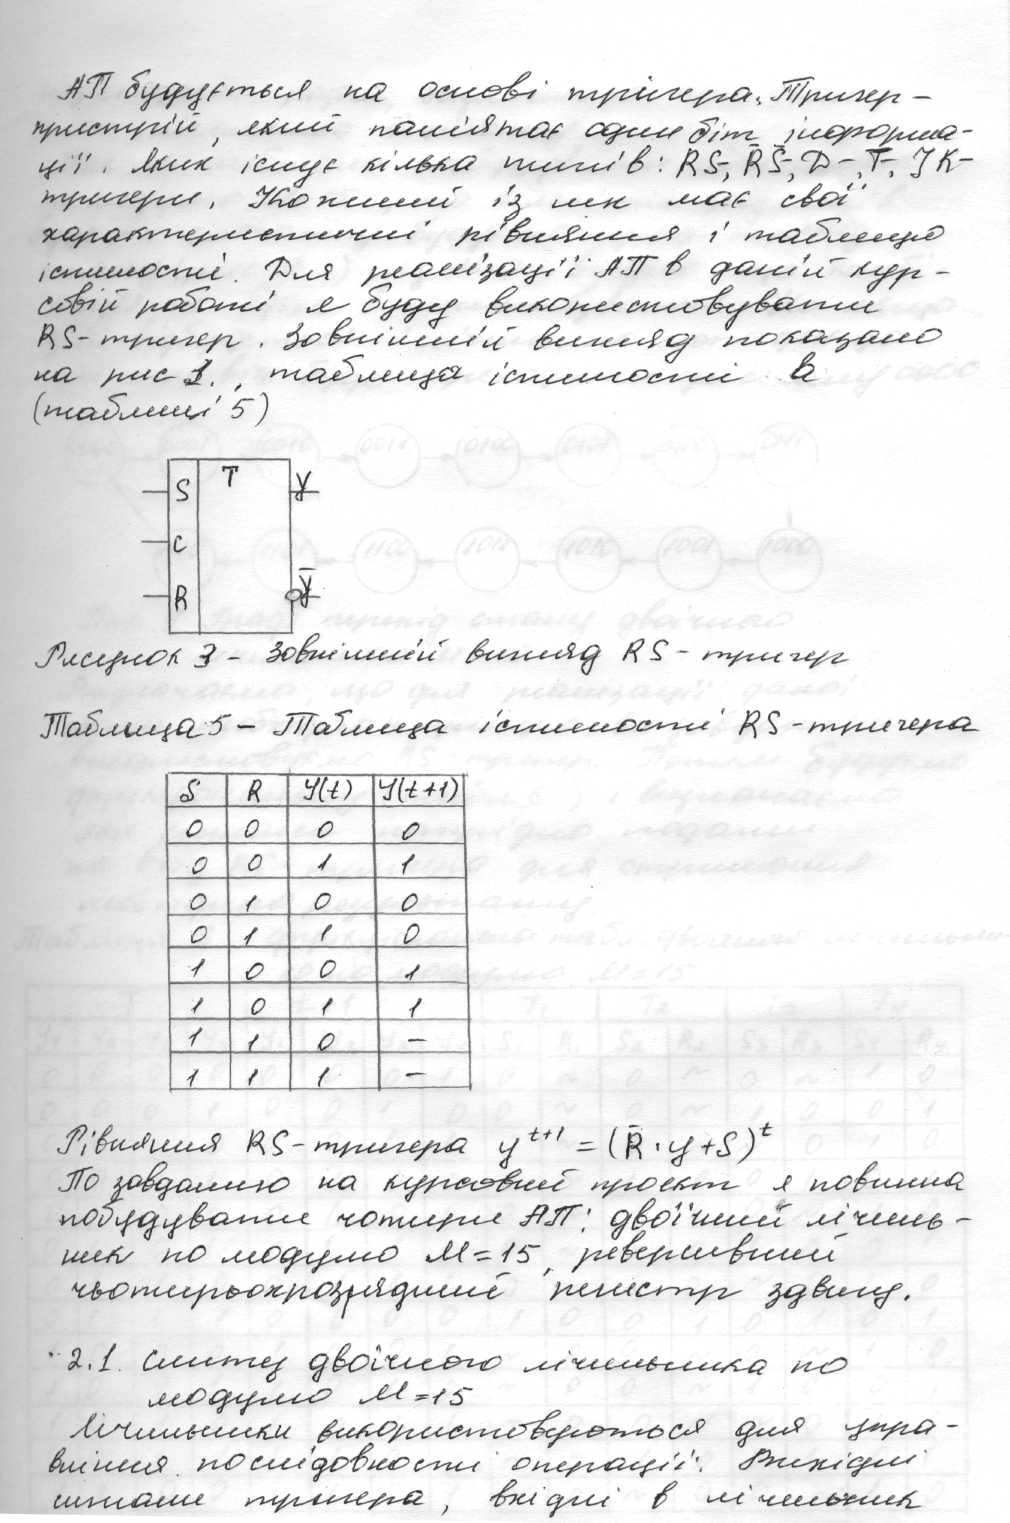 АП будується на основі тригера. Тригер-
пристрій, який пам'ятає один біт інформа-
ції. Яких існує кілька типів: RS-, R̅S̅-, D-, T-, JK-
тригери. Кожний із них має свої
характеристичні рівняння і таблицю
істиності. Для реалізації АП в даній кур-
совій роботі я буду використовувати
RS-тригер. Зовнішній вигляд показано
на рис 3., таблиця істиності в
(таблиці 5)
T
S
y
C
R
y̅
Рисунок 3 - Зовнішній вигляд RS-тригер
Таблиця 5 - Таблиця істиності RS-тригера
S R Y(t) Y(t+1)
0 0 0 0
0 0 1 1
0 1 0 0
0 1 1 0
1 0 0 1
1 0 1 1
1 1 0 -
1 1 1 -
Рівняння RS-тригера y^{t+1} = (R̅·y+S)^t
По завданню на курсовий проект я повинна
побудувати чотири АП: двоїчний лічиль-
ник по модулю M=15, реверсивний
чьотирьохрозрядний регистр здвигу.
2.1. Синтез двоїчного лічильника по
модулю M=15
Лічильники використовуються для упра-
вління послідовності операції. Вихідні
сигнали тригера, вхідні в лічильник